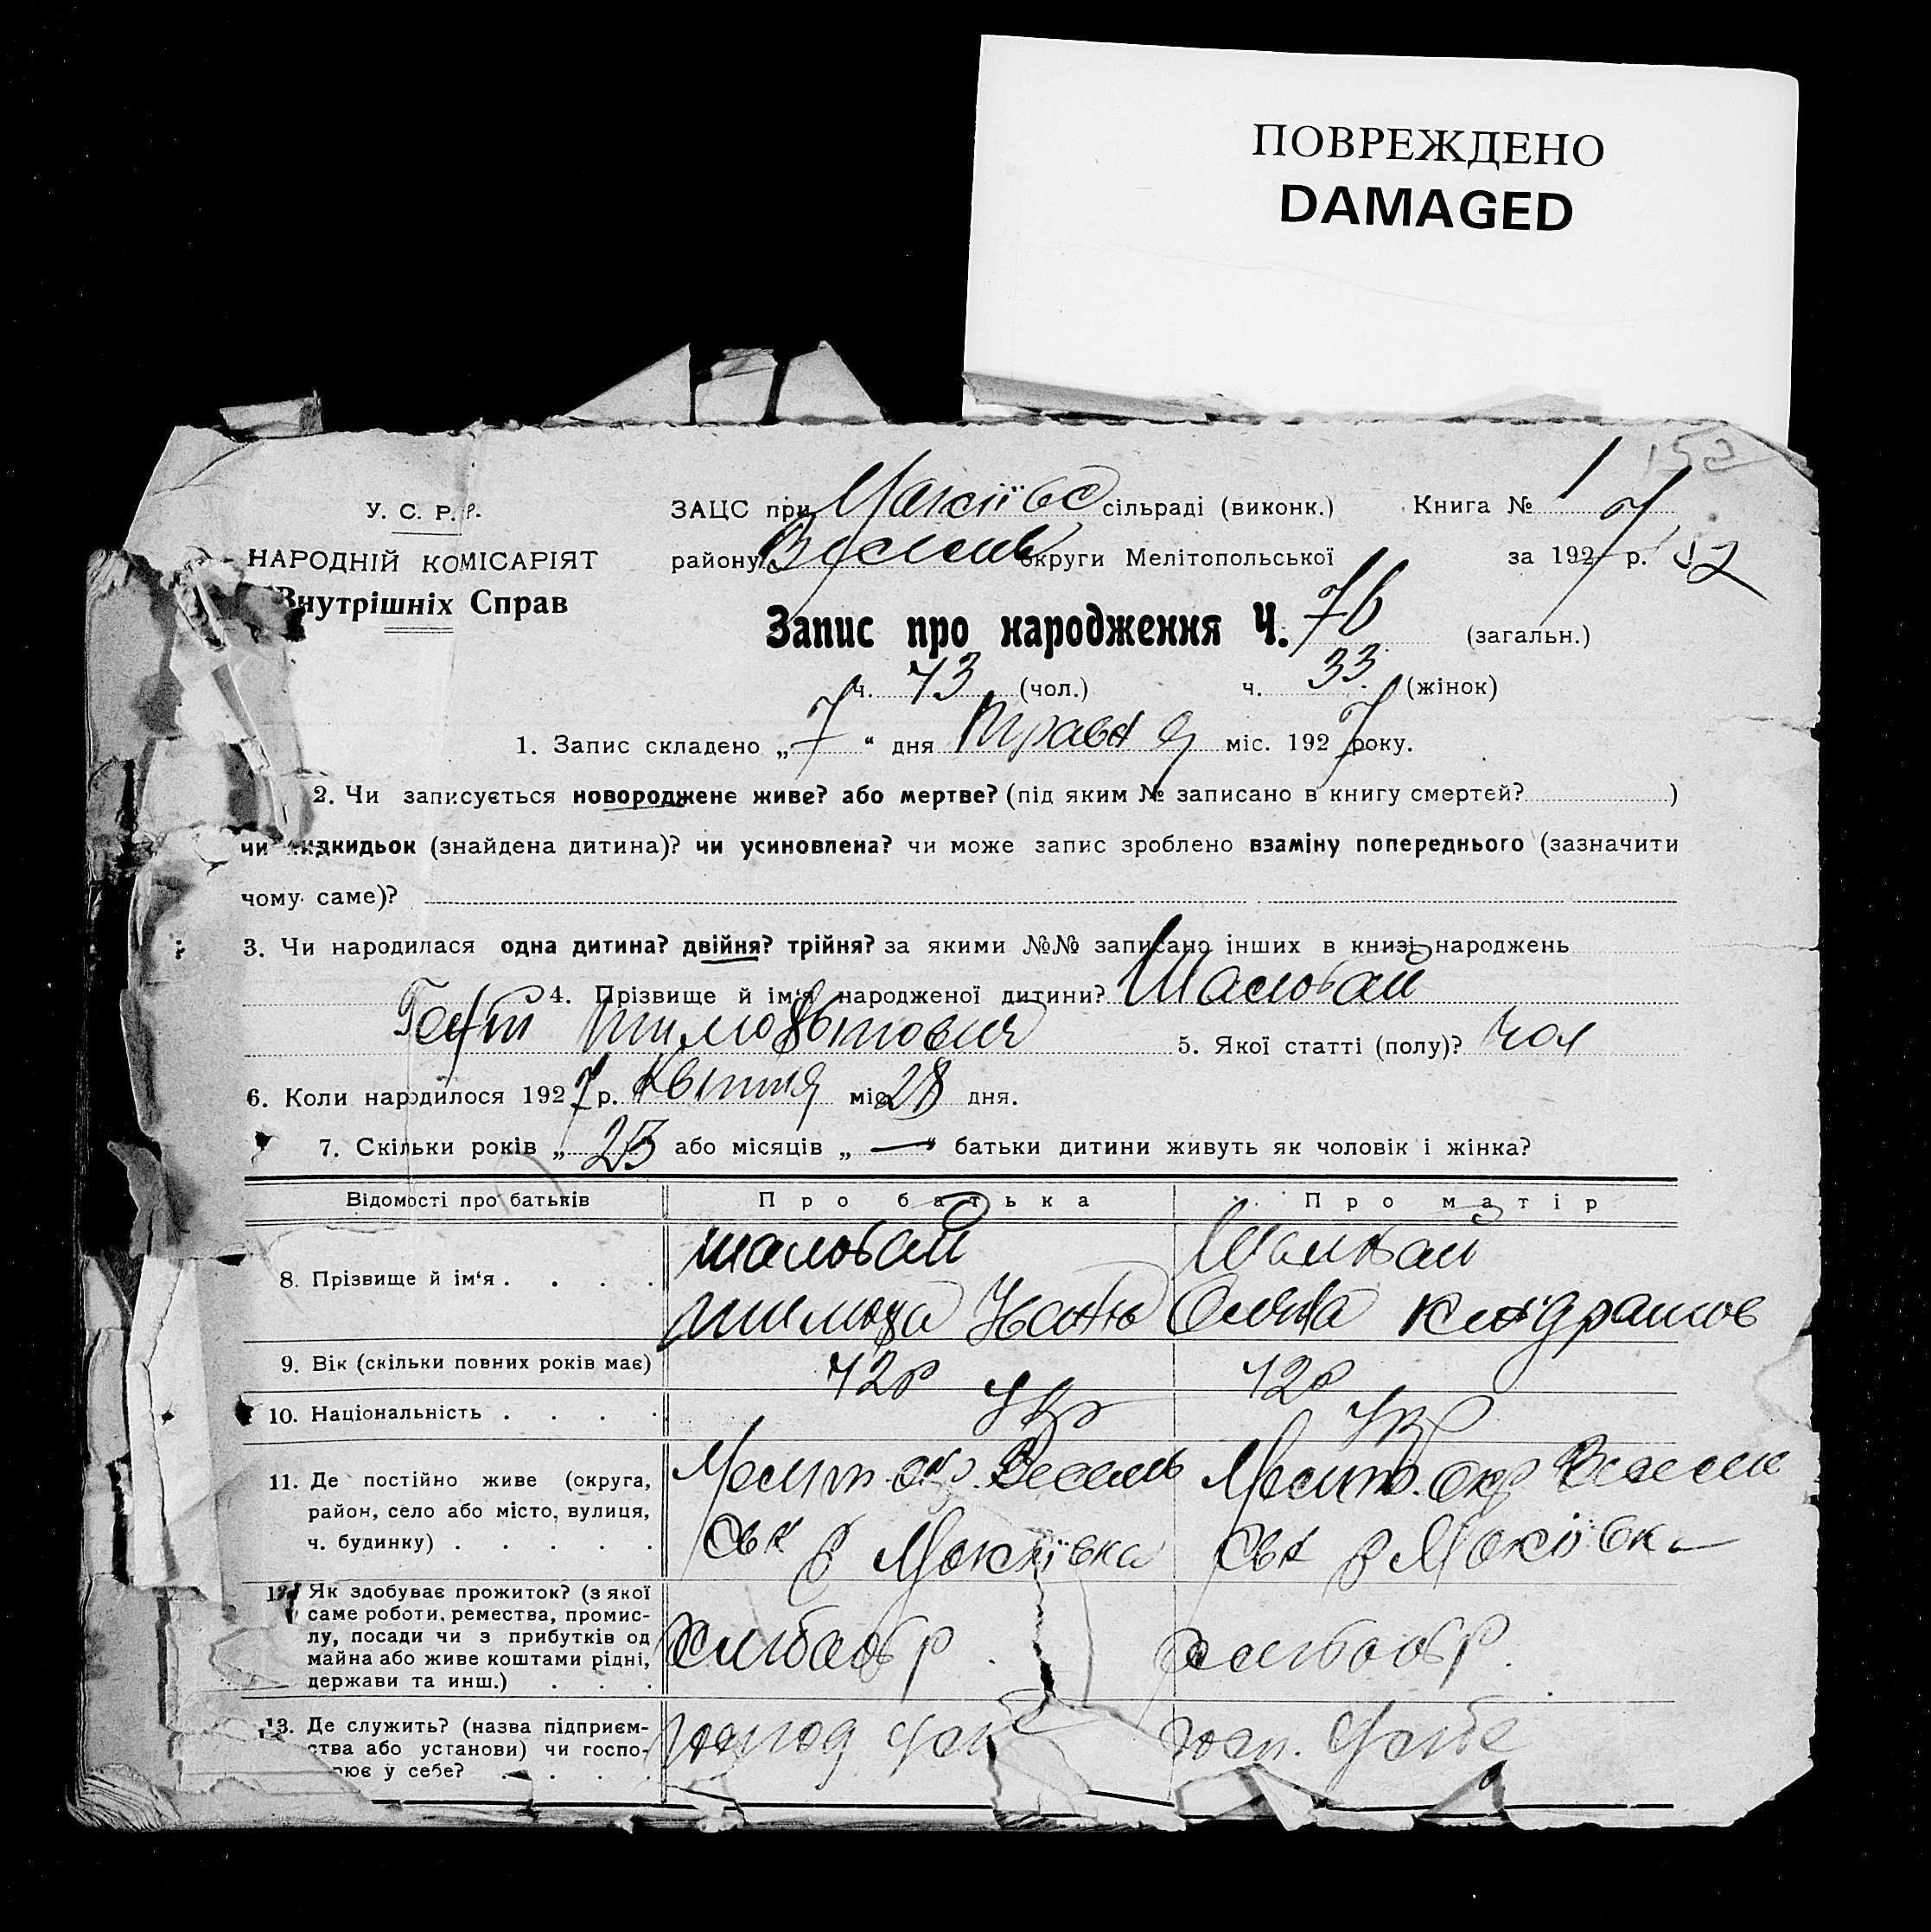 ПОВРЕЖДЕНО
DAMAGED
152
У. С. Р. Р.
ЗАЦС при Мокіївс сільраді (виконк.) Книга № 1
НАРОДНІЙ КОМІСАРІЯТ
району Веселів округи Мелітопольської за 1927 р. 152
Внутрішніх Справ
Запис про народження Ч. 76 (загальн.)
ч. 43 (чол.) ч. 33 (жінок)
1. Запис складено „7“ дня Травня міс. 1927 року.
2. Чи записується новороджене живе? або мертве? (під яким № записано в книгу смертей? )
чи підкидьок (знайдена дитина)? чи усиновлена? чи може запис зроблено взаміну попереднього (зазначити
чому саме)?
3. Чи народилася одна дитина? двійня? трійня? за якими №№ записано інших в книзі народжень
4. Прізвище й ім‘я народженої дитини? Шаловай
5. Якої статті (полу)? чол
6. Коли народилося 1927 р. Квітня міс 28 дня.
7. Скільки років „23 або місяців „—“ батьки дитини живуть як чоловік і жінка?
Відомості про батьків Про батька Про матір
8. Прізвище й ім‘я . . . . Шаловай Шаловай
9. Вік (скільки повних років має) 42р 42р
10. Національність . . . . Укр Укр
11. Де постійно живе (округа, Меліт. окр. Веселів Меліт. окр Веселів
район, село або місто, вулиця,
ч. будинку) . . . . . ськ р Мокіївка ськ р Мокіївка
12. Як здобуває прожиток? (з якої
саме роботи, ремества, промис-
лу, посади чи з прибутків од хлібороб хлібороб.
майна або живе коштами рідні,
держави та инш.) . . .
13. Де служить? (назва підприєм-
ства або установи) чи госпо-
рює у себе? . . . .